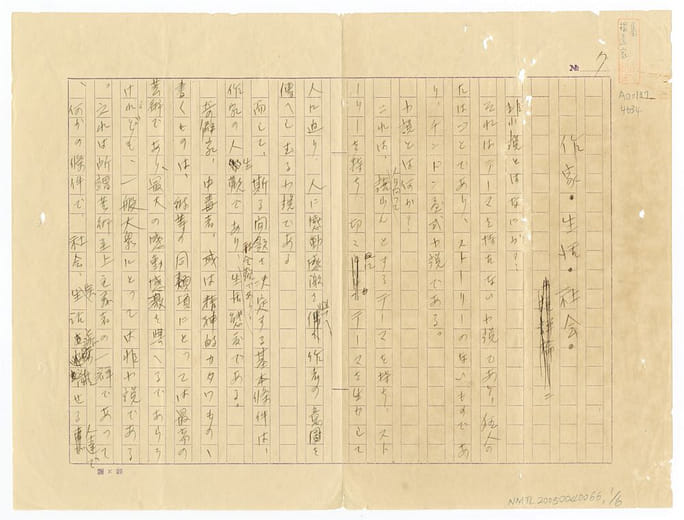 No 7
A00127
4634
作家・生活・社会・
非小説とはなにか?
それはテーマを持たない小説であり、狂人の
たはごとであり、ストーリーのないものであ
り、チンドン屋式小説である。
小説とは何か?
これは、語らんとするテーマを持ち、スト
ーリーを持ち、テーマを生かして
人に迫り、人に感動感激を與へ作者の意図を
傳へしむる小説である
而して、斯る問題を決定する基本條件は、
作家の人生観であり、社会観であり、生活態度である。
奇癖家、中毒者、或は精神的カタワもの、
書くものは、彼等の同類項にとっては最高の
芸術であり、最大の感動感激を與へるであらう
けれども、一般大衆にとっては非小説である
。それは所謂芸術至上主義者の一群であって
、何かの條件で社会、生活せる人達で
NMTL 20050040066, 1/6